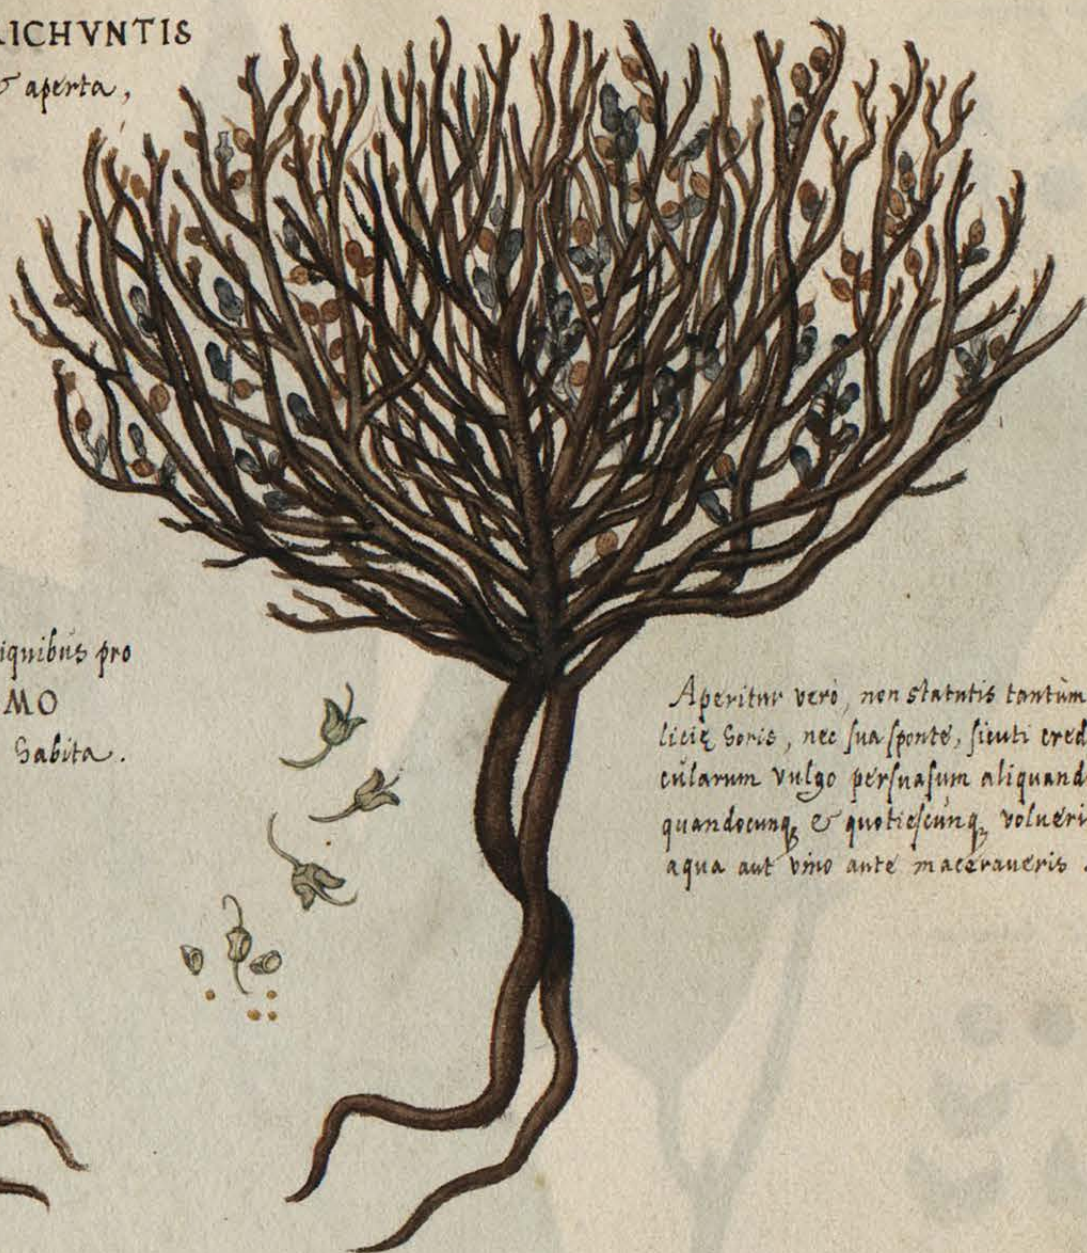 RICHVNTIS
& aperta,
iquibus pro
MO
habita.
Aperitur verò, non statutis tantùm
licię horis, nec sua sponte, sicuti cred
cularum vulgo persuasum aliquand
quandocunq, & quotiescunq, volueri
aqua aut vino ante maceraueris.